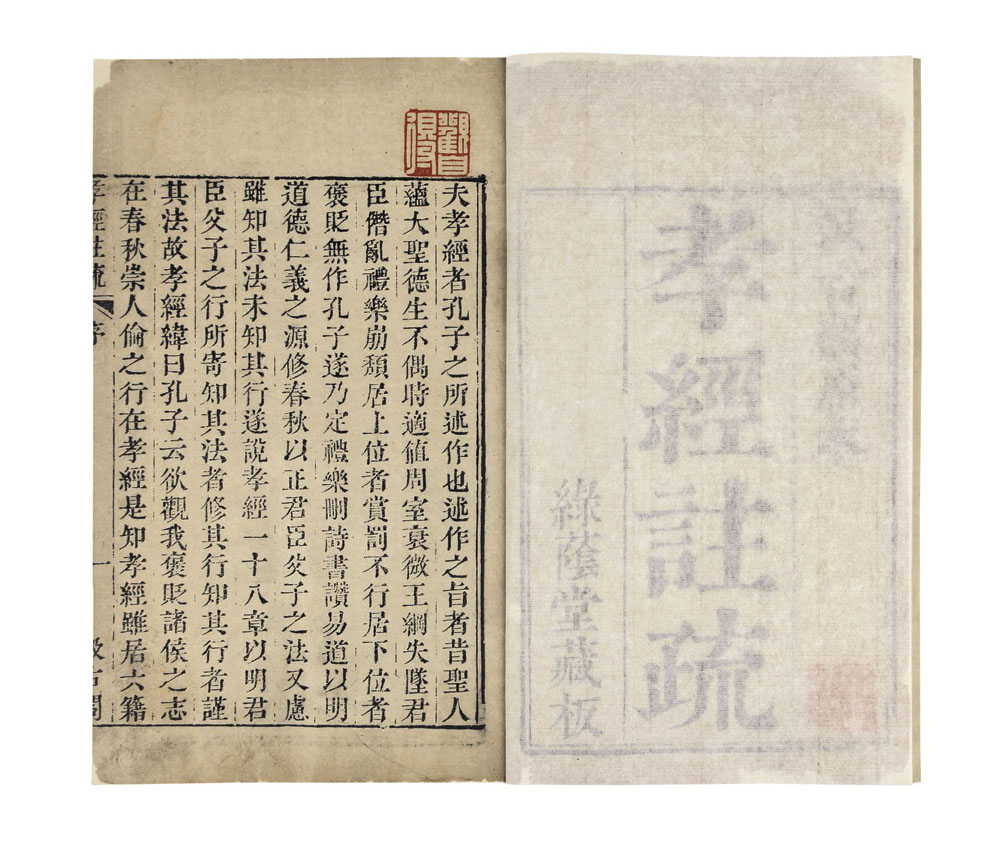 孝經註疏
綠蔭堂藏板
夫孝經者孔子之所述作也述作之旨者昔聖人
蘊大聖德生不偶時適值周室衰微王綱失墜君
臣僭亂禮樂崩頹居上位者賞罰不行居下位者
褒貶無作孔子遂乃定禮樂刪詩書讚易道以明
道德仁義之源修春秋以正君臣父子之法又慮
雖知其法未知其行遂說孝經一十八章以明君
臣父子之行所寄知其法者修其行知其行者謹
其法故孝經緯曰孔子云欲觀我褒貶諸侯之志
在春秋崇人倫之行在孝經是知孝經雖居六籍
孝經註疏 序 一 汲古閣